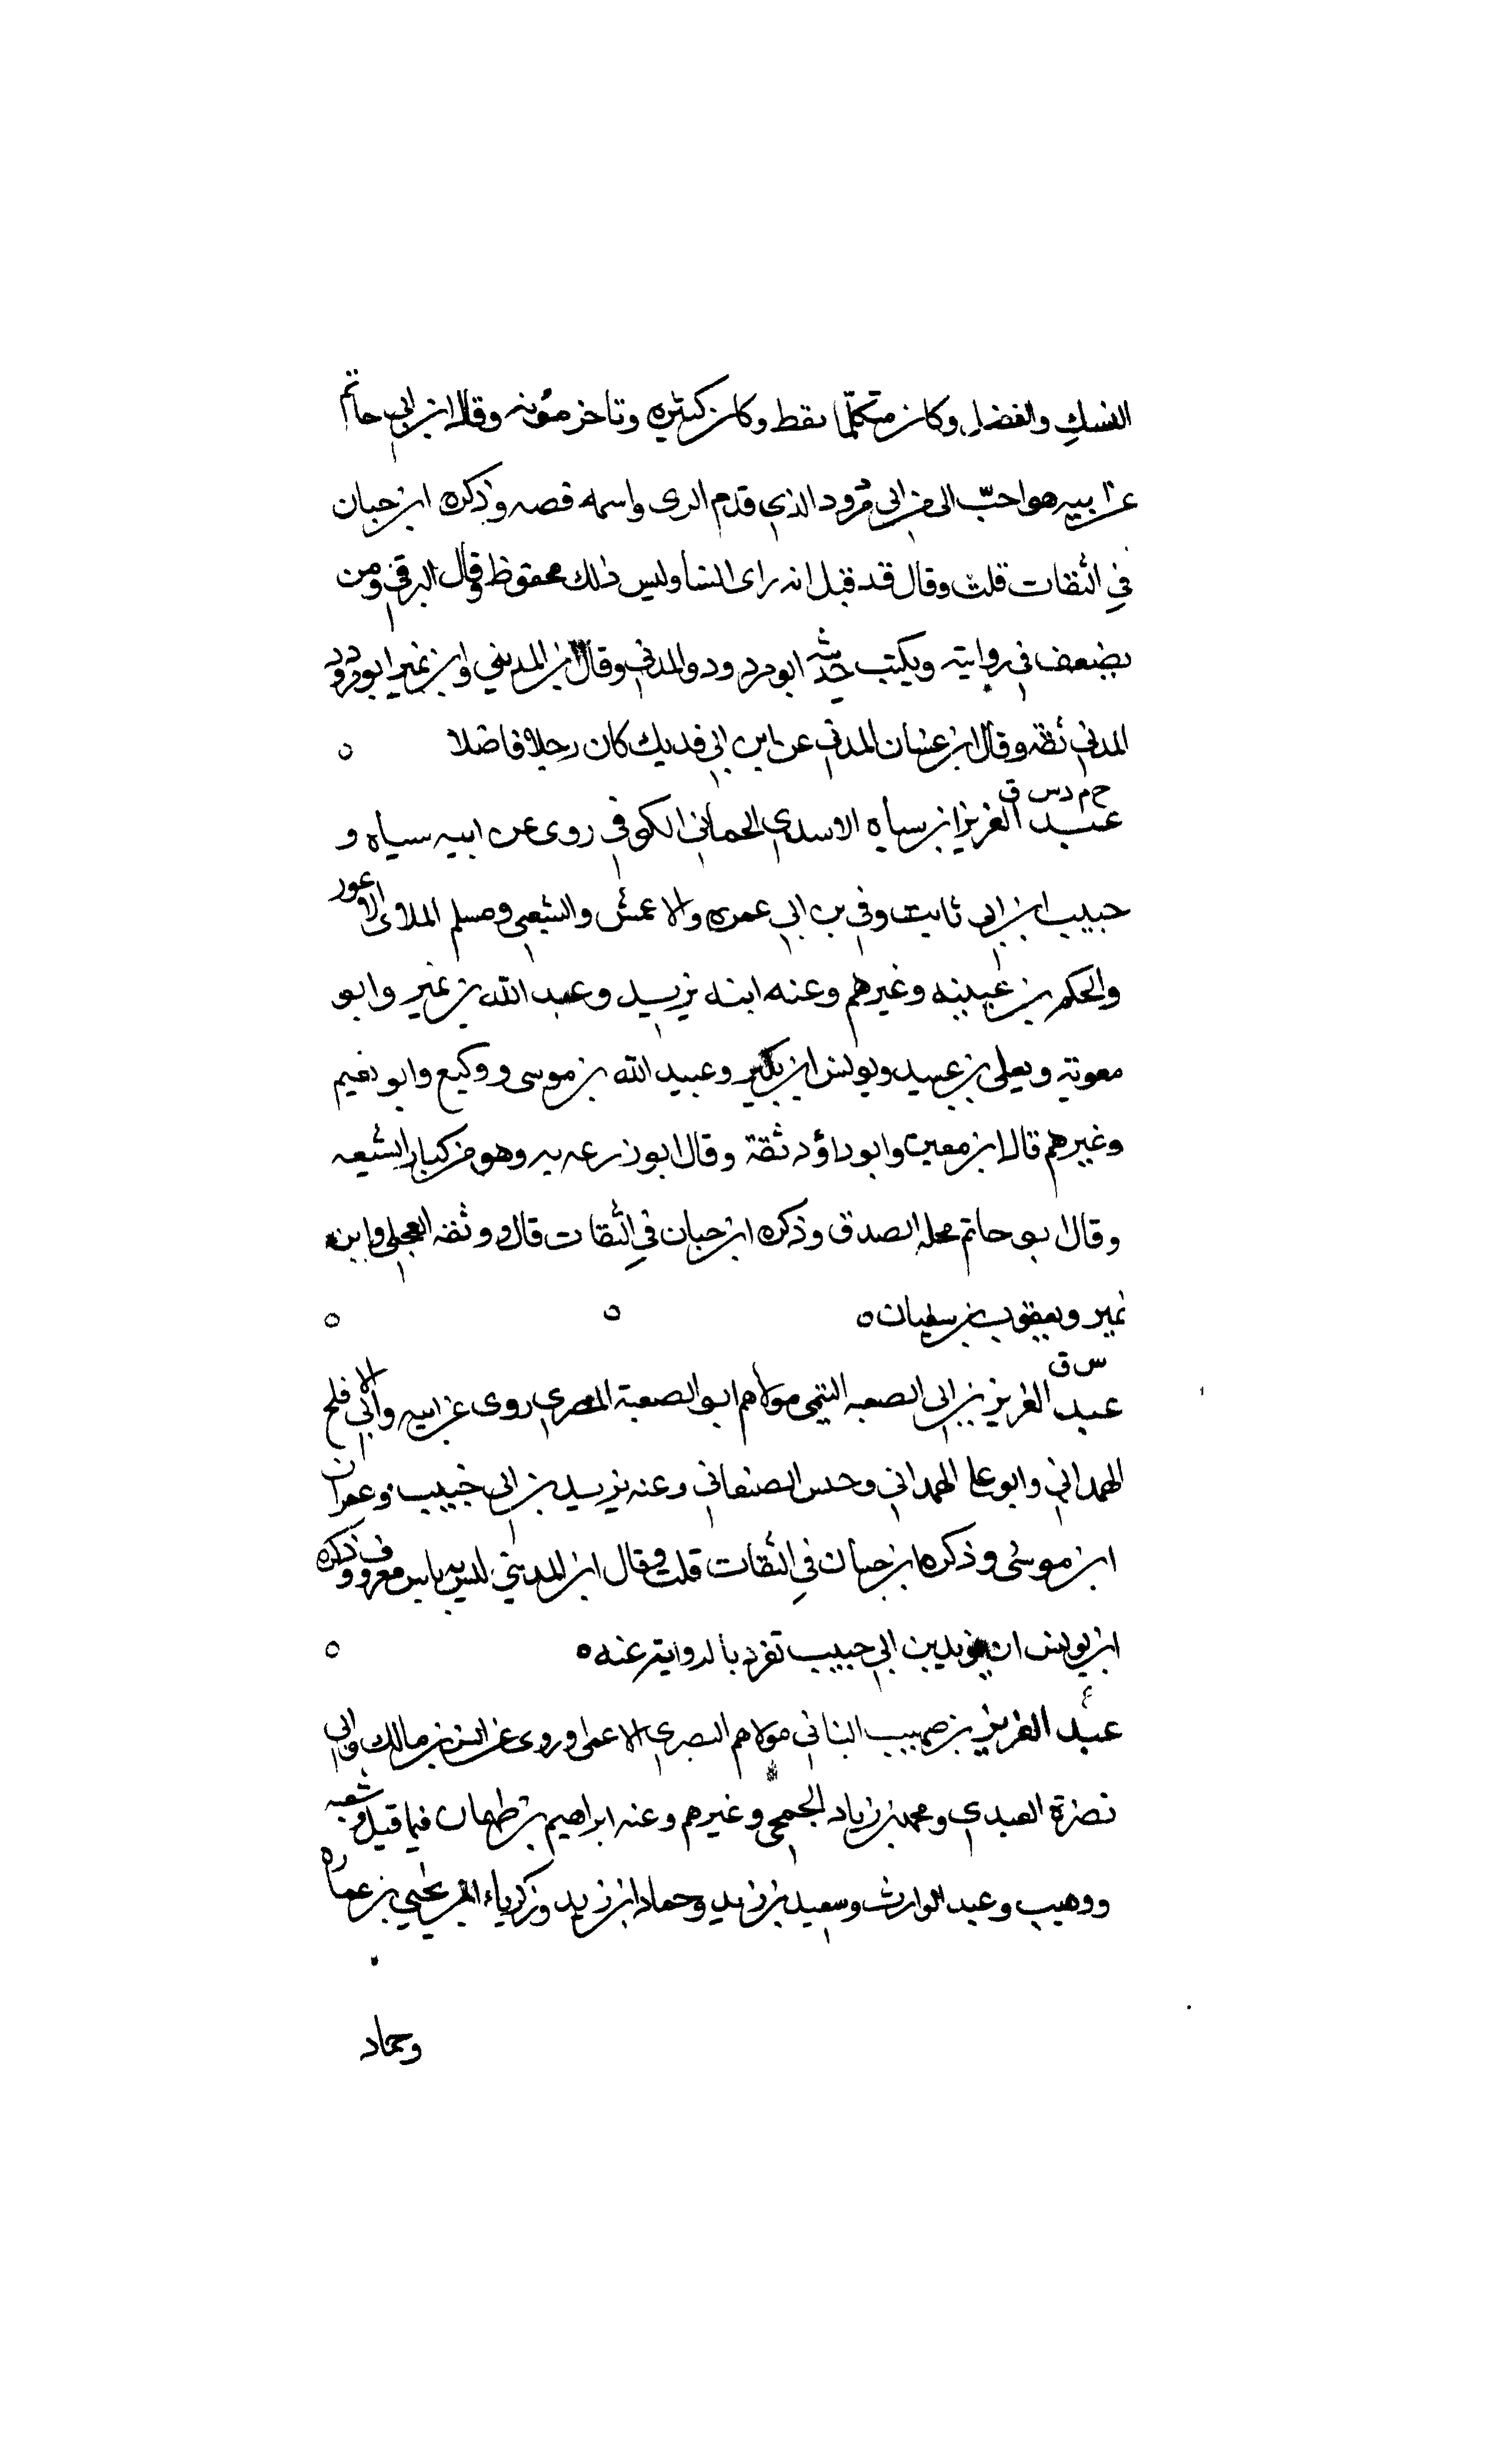 النسك والفضل وكان متكلما يقط وكان كثيره وتاخر موته وقال ابن ابي حاتم
عن ابيه هو احبّ الى من ابي مودود الذي قدم الرى واسمه فصه وذكره ابن حبان
في الثقات قلت وقال قد قيل انه راى انسا وليس ذلك محفوظ وقال البرقي ومن
يضعف في روايته ويكتب حديثه ابو مردود والمدني وقال ابن المديني وابن نمير ابو مردود
المدني ثقة وقال ابن عثمان المدني عن ابن ابي فديك كان رجلا فاضلا ه
خ م د س ق
عبد العزيز ابن سياه الاسدي الحماني الكوفي روى عن ابيه سياه و
حبيب ابن ابي ثابت وفي بن ابي عمره والاعمش والشعبي ومسلم الملاوى الاعور
والحكم بن عيينه وغيرهم وعنه ابنه يزيد وعبد الله بن نمير وابو
معوية ويعلى بن عبيد ويونس ابن بكير وعبيد الله بن موسى ووكيع وابو نعيم
وغيرهم قال ابن معين وابو داؤد ثقة وقال ابو زرعه به وهو من كبار الشيعه
وقال ابو حاتم محله الصدق وذكره ابن حبان في الثقات قال ووثقه العجلي وابن
نمير ويعقوب بن سفيان ه ه ه
س ق
عبد العزيز بن ابي الصعبه التيمي مولاهم ابو الصعبة المصري روى عن ابيه وابي الافلح
الهمداني وابو عا الهمداني وحنس الصنعاني وعنه يزيد بن ابي حبيب وعمران
ابن موسى وذكره ابن حبان في الثقات قلت وقال ابن المديني ليس به باس معروف وذكره
ابن يونس ان يزيد بن ابي حبيب تفرد بالرواية عنه ه ه
ع
عبد العزيز بن صهيب البناني مولاهم البصري الاعمى روى عن انس بن مالك وابي
نضرة العبدي ومحمد بن زياد الجمحي وغيرهم وعنه ابراهيم بن طهمان فيما قيل وشعبه
ووهيب وعبد الوارث وسعيد بن زيد وحماد ابن زيد وزكرياء ابن يحيى بن عماره
وحماد